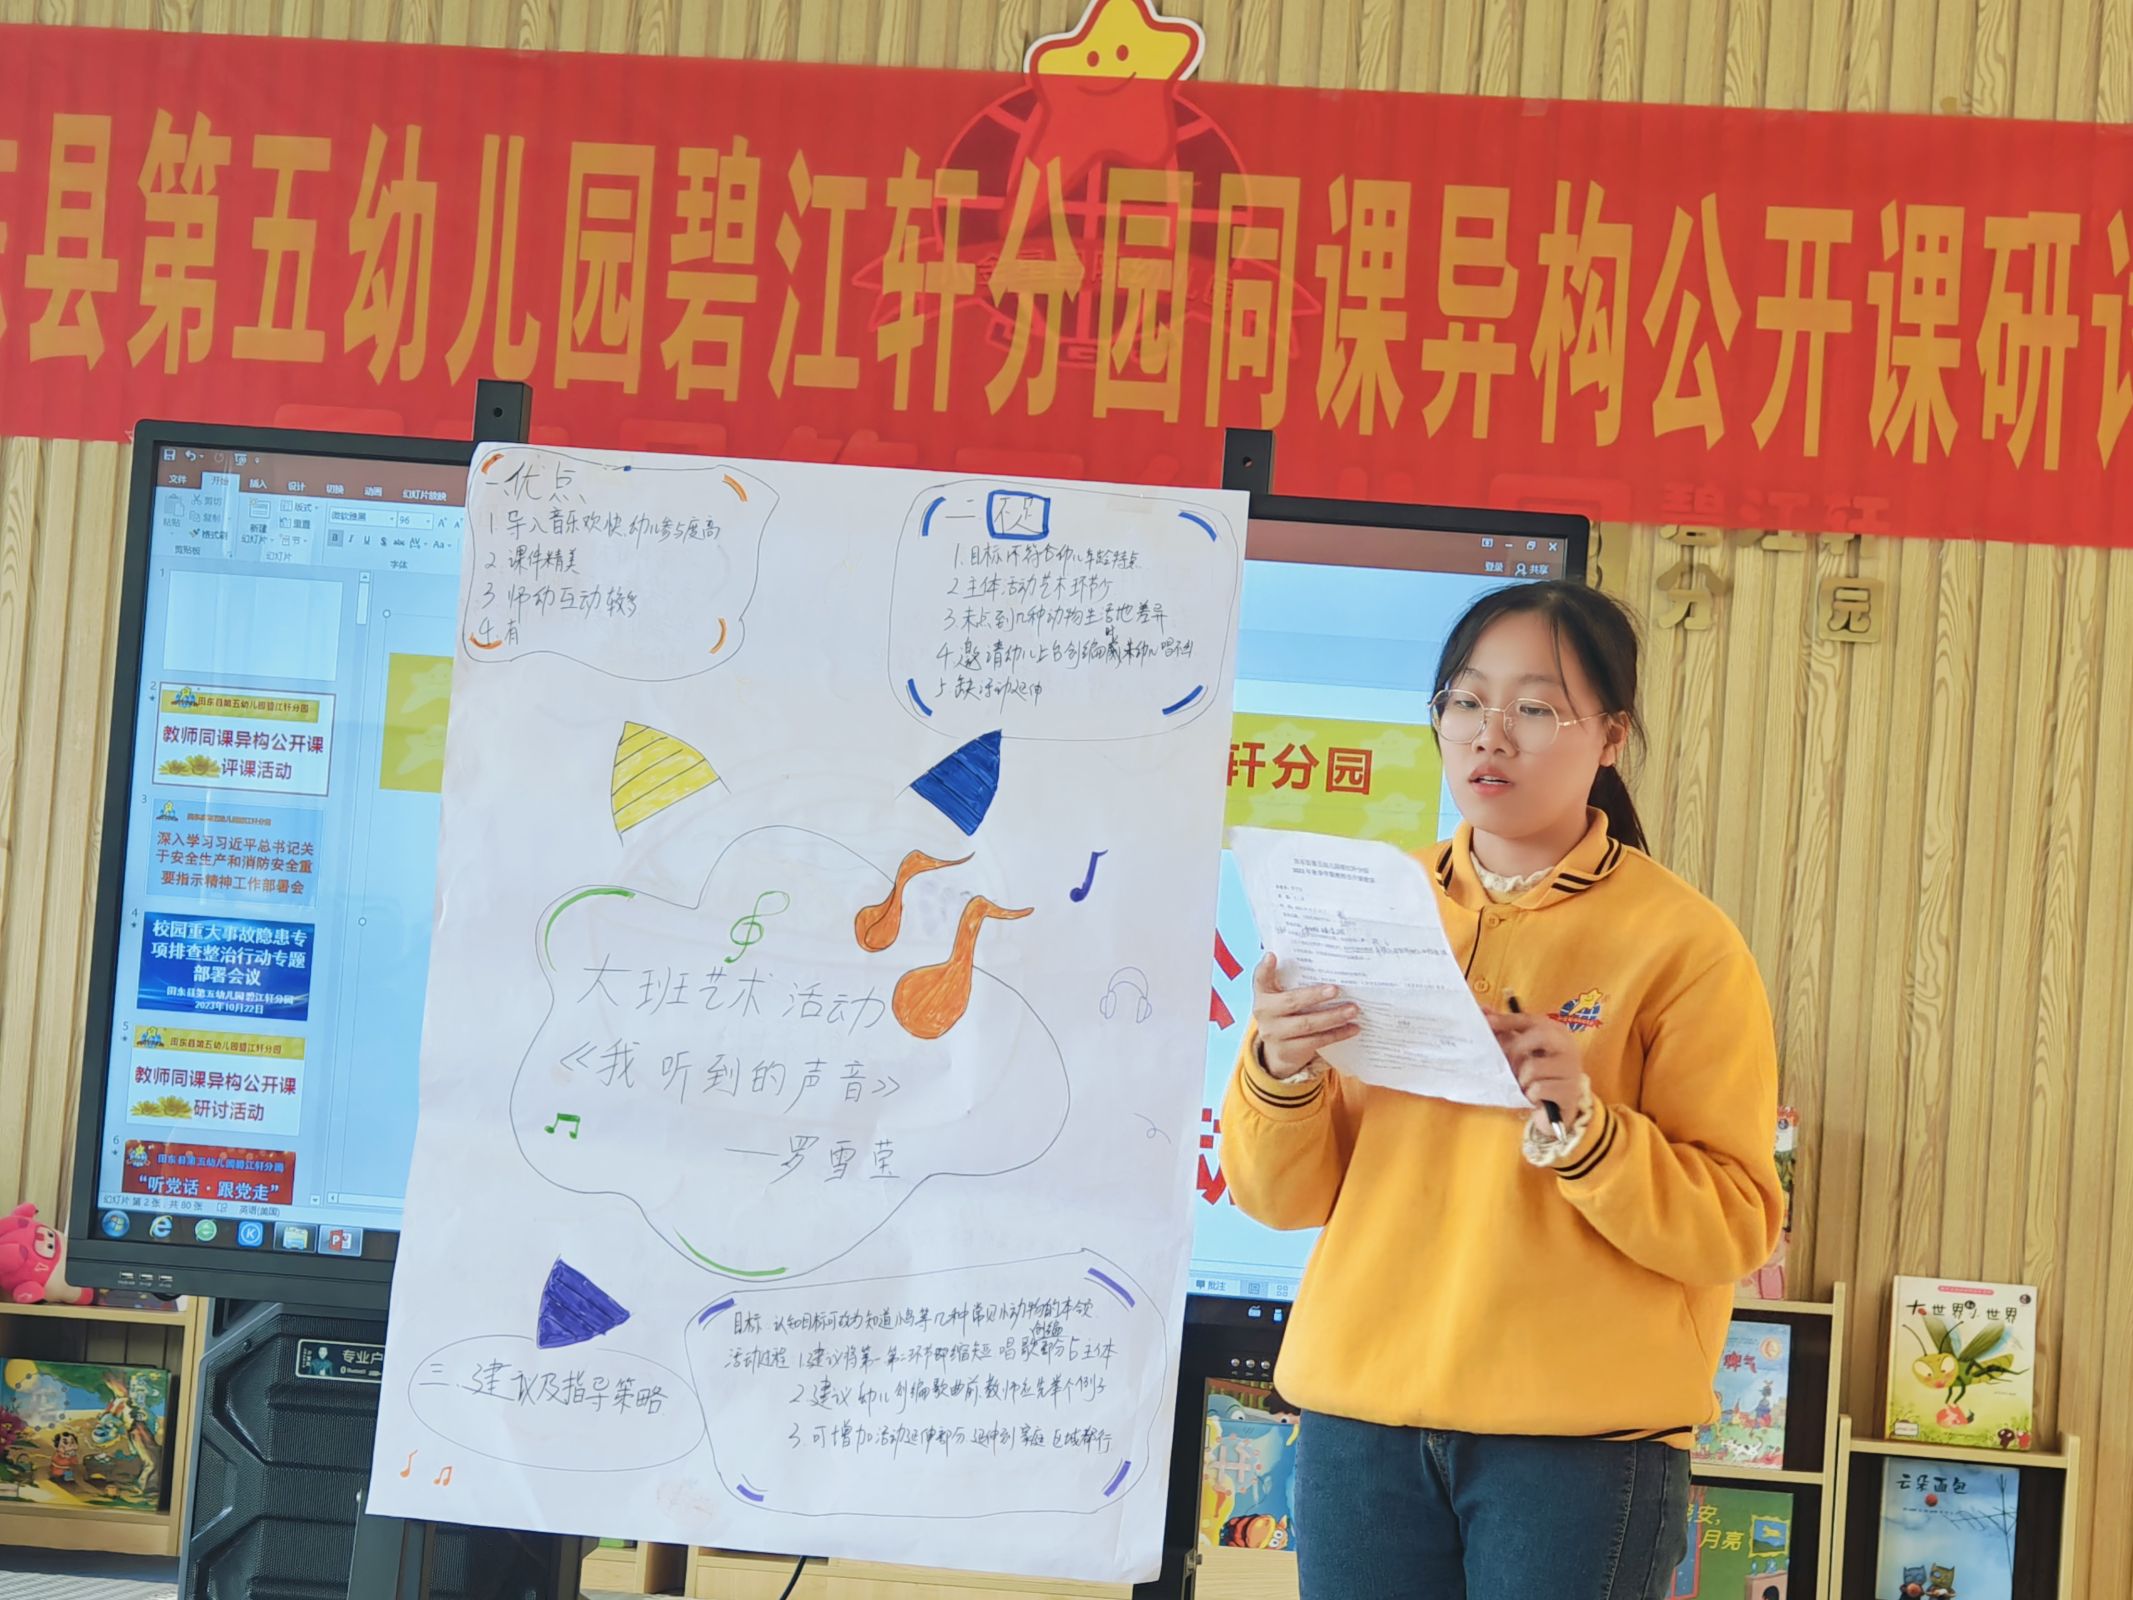 县第五幼儿园碧江轩分园同课异构公开课研讨
碧江轩
分园
文件 开始 插入 设计 切换 动画 幻灯片放映
粘贴
剪切
复制
格式刷
剪贴板
新建
幻灯片
版式
重置
节
幻灯片
微软雅黑 96
字体
登录 共享
1
2
田东县第五幼儿园碧江轩分园
教师同课异构公开课
评课活动
3
田东县第五幼儿园碧江轩分园
深入学习习近平总书记关
于安全生产和消防安全重
要指示精神工作部署会
4
校园重大事故隐患专
项排查整治行动专题
部署会议
田东县第五幼儿园碧江轩分园
2023年10月22日
5
田东县第五幼儿园碧江轩分园
教师同课异构公开课
研讨活动
6
田东县第五幼儿园碧江轩分园
“听党话·跟党走”
幻灯片 第 2 张，共 80 张 英语(美国)
批注
轩分园
一、优点
1. 导入音乐欢快,幼儿参与度高
2. 课件精美
3. 师幼互动较多
4. 有
二 不足
1. 目标不符合幼儿年龄特点
2 主体活动艺术环节少
3. 未点到几种动物生活地差异
4. 邀请幼儿上台创编时
5 缺活动延伸
大班艺术活动
《我听到的声音》
—罗雪莹
三、建议及指导策略
目标: 认知目标可改为知道小鸟等几种常见小动物的本领
活动过程 1. 建议将第一第二环节 缩短 唱歌创编部分占主体
2. 建议幼儿创编歌曲前,教师应先举个例子
3. 可增加活动延伸部分,延伸到家庭 区域都行
专业户
大世界小世界
脾气
云朵面包
晚安,
月亮